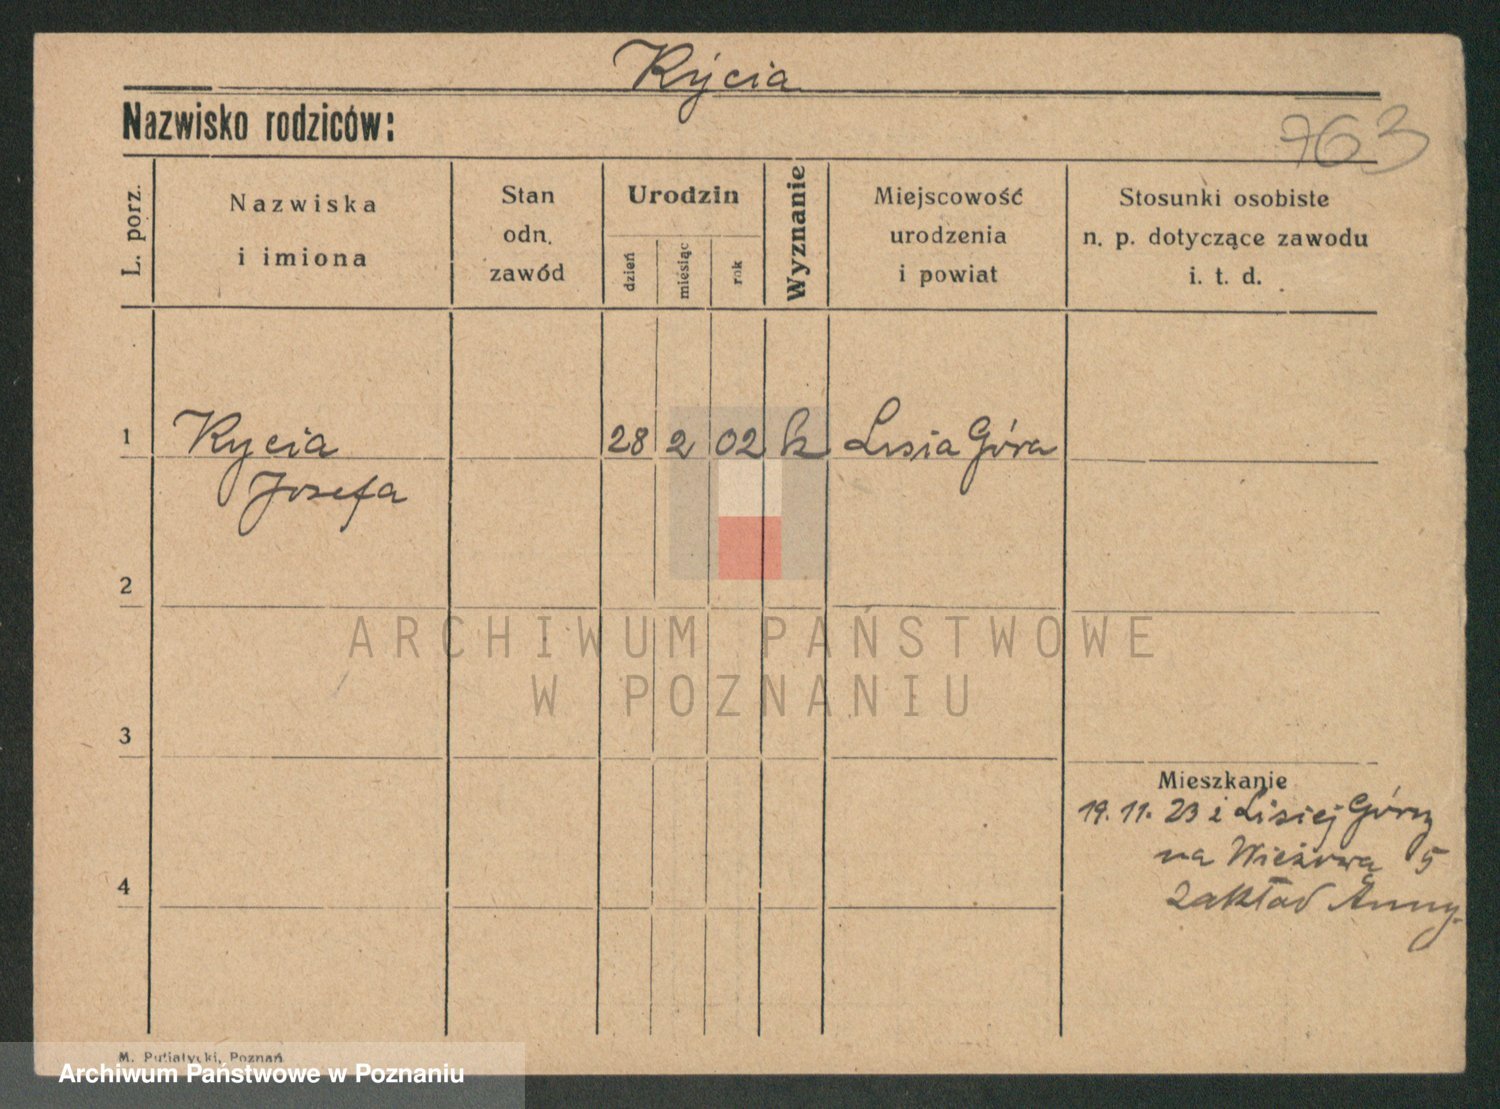 Rycia
Nazwisko rodziców:
763
L. porz.
Nazwiska
i imiona
Stan
odn.
zawód
Urodzin
dzień
miesiąc
rok
Wyznanie
Miejscowość
urodzenia
i powiat
Stosunki osobiste
n. p. dotyczące zawodu
i. t. d.
1
Rycia
Josefa
28 2 02 k Lisia Góra
2
ARCHIWUM PAŃSTWOWE
W POZNANIU
3
Mieszkanie
19. 11. 23 z Lisiej Góry
na Wieżowa 5
Zakład Anny.
4
M. Putiatycki, Poznań
Archiwum Państwowe w Poznaniu